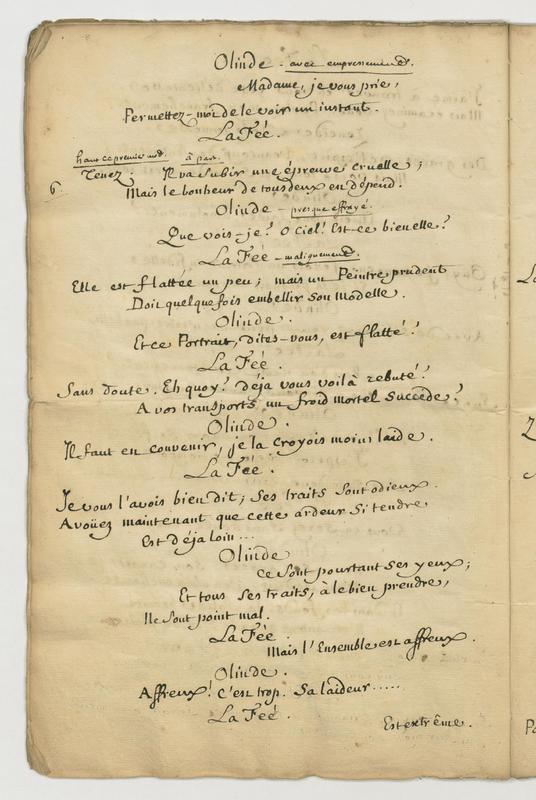 Olinde - avec empressement.
Madame, je vous prie,
Permettez-moi de le voir un instant.
La Fée.
haut ce premier mot. à part.
6. Tenez; Il va subir une épreuve cruelle;
Mais le bonheur de tous deux en dépend.
Olinde - presque effrayé.
Que vois-je? O Ciel! Est-ce bien elle?
La Fée - malignement.
Elle est flattée un peu; mais un Peintre prudent
Doit quelquefois embellir son modelle.
Olinde.
Et ce Portrait, dites-vous, est flatté?
La Fée.
Sans doute. Eh quoy? déja vous voilà rebuté?
A vos transports un froid mortel succede?
Olinde.
Il faut en convenir, je la croyois moins laide.
La Fée.
Je vous l'avois bien dit; ses traits sont odieux.
Avoüez maintenant que cette ardeur si tendre
Est déja loin...
Olinde
Ce sont pourtant ses yeux;
Et tous ses traits, à le bien prendre,
Ne sont point mal.
La Fée.
Mais l'Ensemble est affreux.
Olinde.
Affreux! C'est trop. Sa laideur.....
La Fée.
Est extrême.